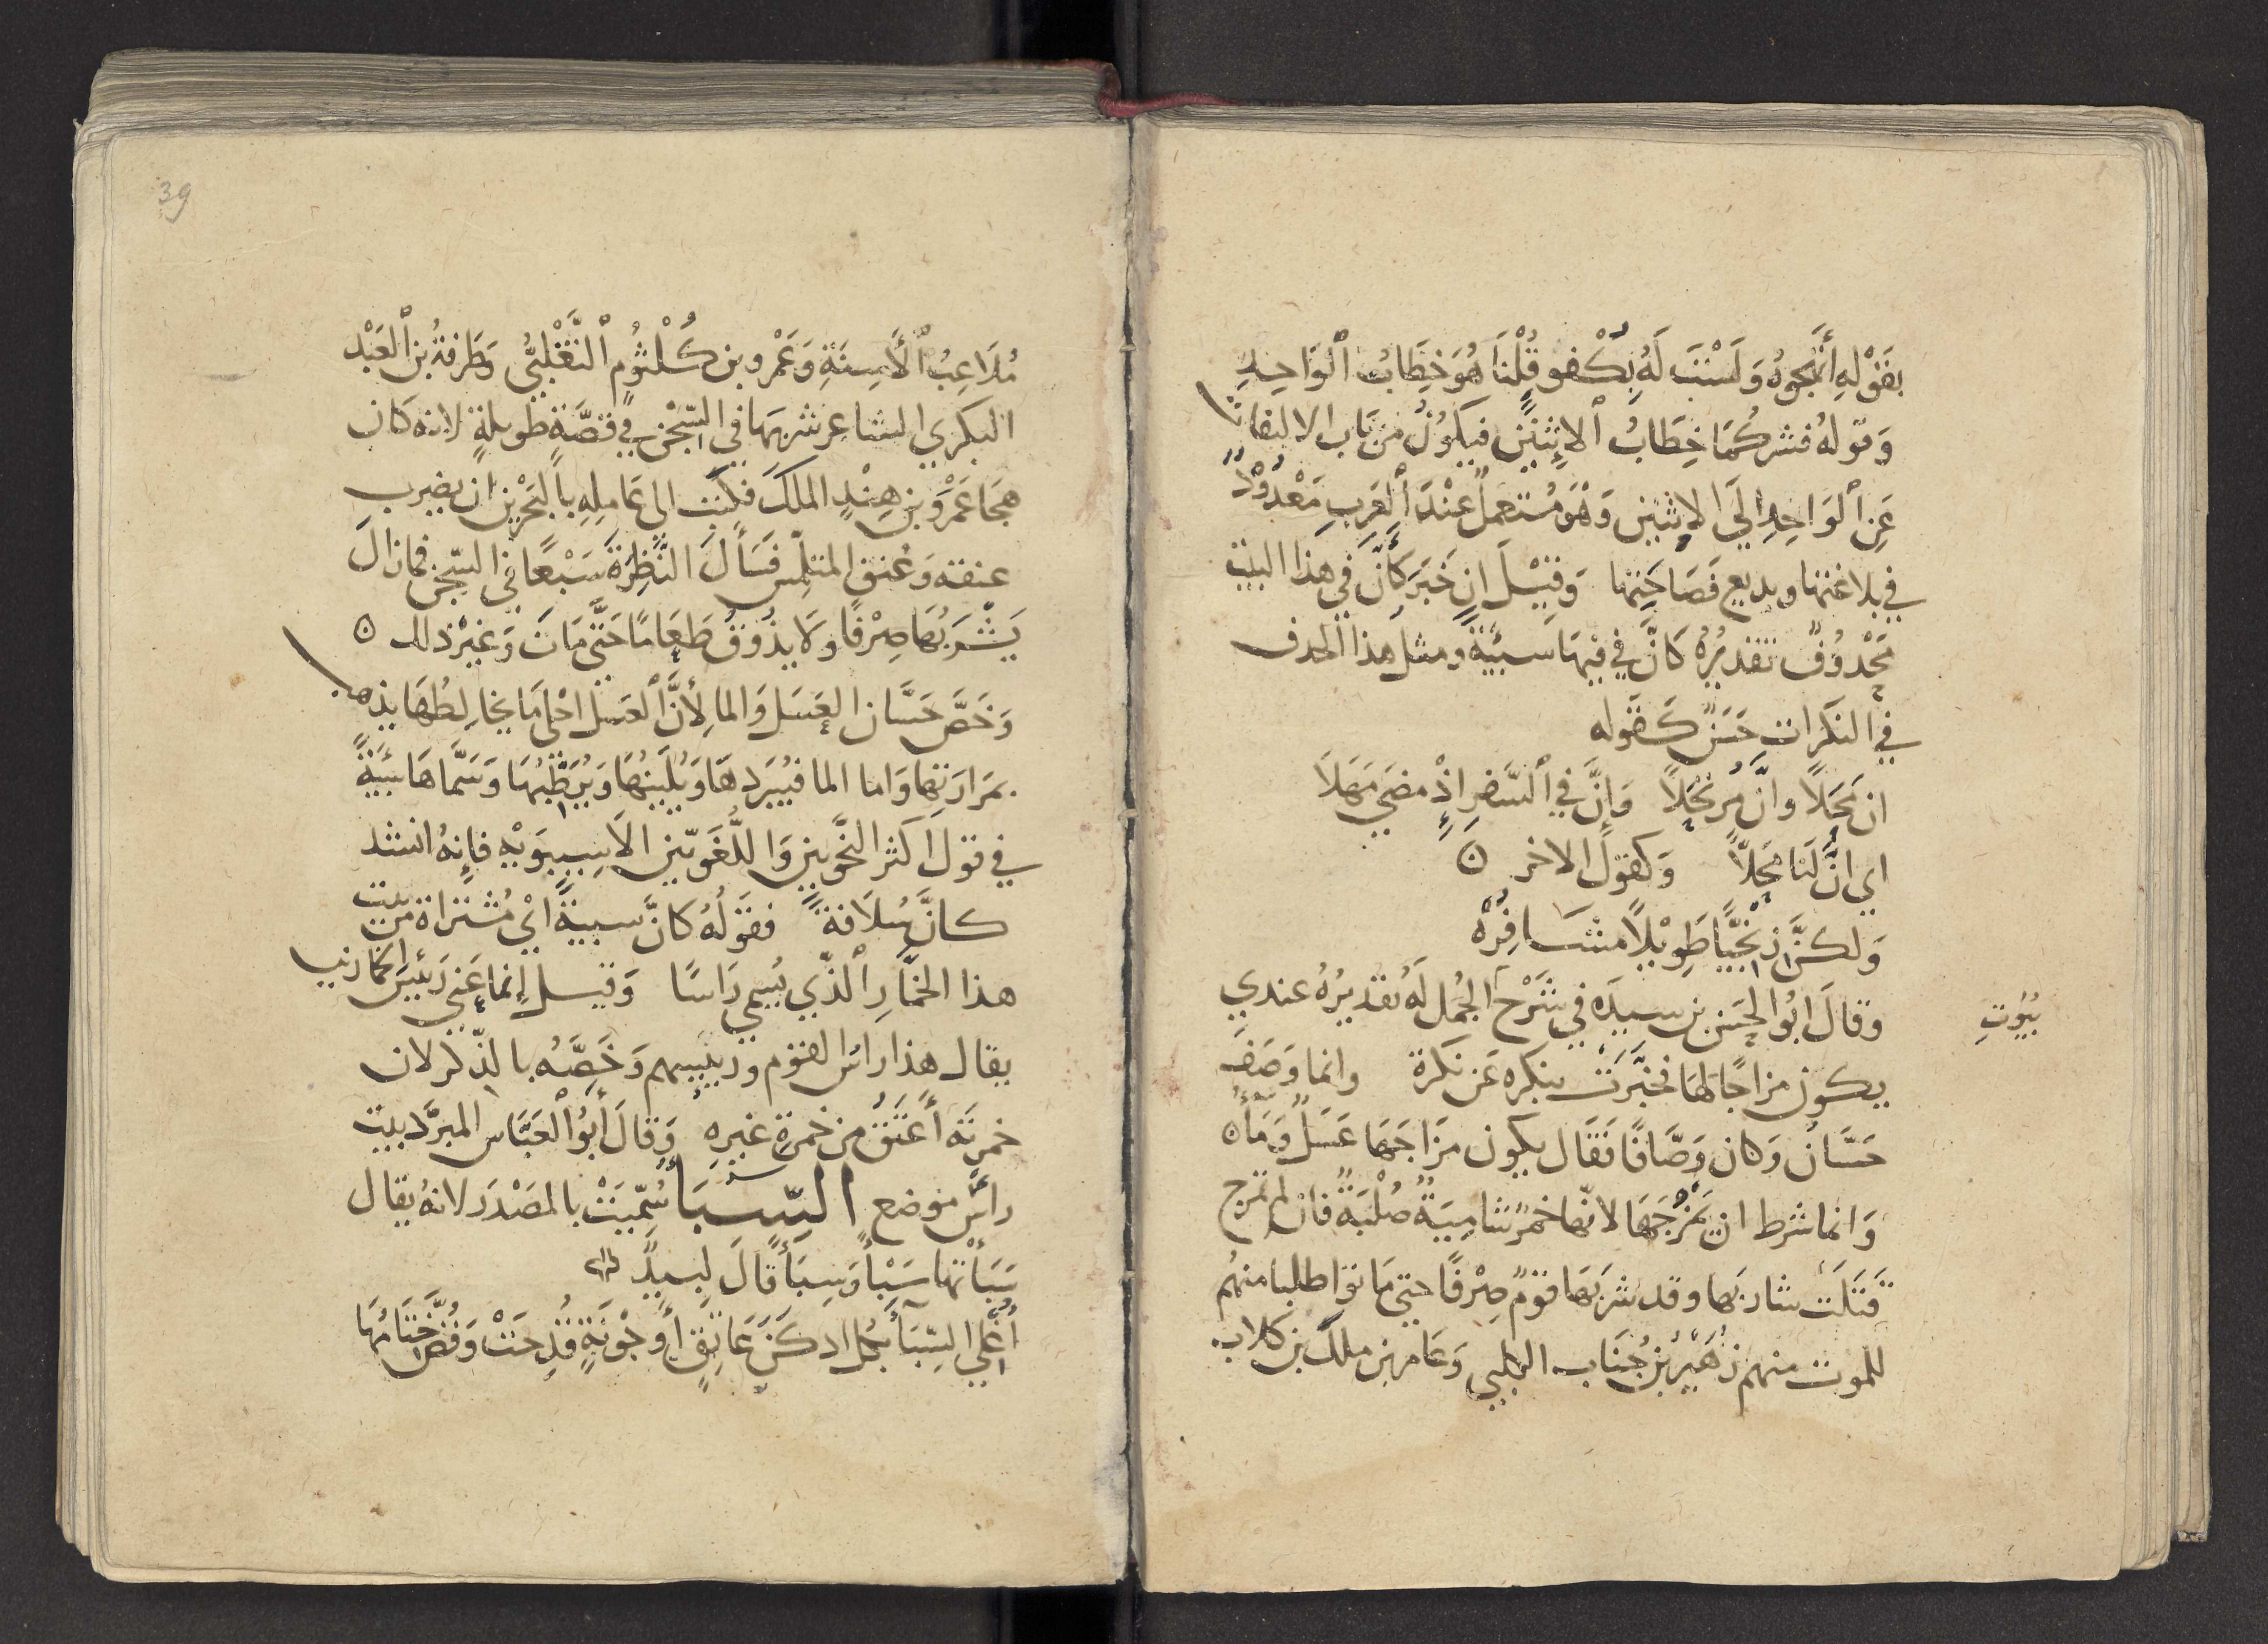 بقَوْلِهِ أَتَهْجُوهُ وَلَسْتَ لَهُ بِكُفْو قُلْنَا هُوَ خِطَابُ الْوَاحِدِ
وَقولهُ فشركُمَا خِطَابُ الاِثنَيْنِ فيكُونُ من بَاب الالتفات
عَنِ الْوَاحِدِ إِلَى الاِثنين وَهْوَ مُستعملٌ عنْدَ الْعَرَبِ مَعْدُوْدٌ
في بلاغتها وبديع فَصَاحَتِها وَقِيْلَ ان خَبَرَ كَأَنَّ في هذا البيت
مَحْذُوْفٌ تقديْرُهُ كَأَنَّ في فيهَا سبيئَةً ومثل هذا الحذف
في النكَراتِ حَسَنٌ كَقَوله
ان مَحَلاً وانَّ مُرْتَحَلاً وَإِنَّ في السَّفرِ اذْ مضَى مَهَلاَ
اي انَّ لَنَا مَحَلاًّ وَكقَوْلِ الاخر ۞
وَلكنَّ زَنْجِيًّا طَوِيْلاً مشَافِرُهْ
وقَالَ ابُو الحَسَن بن سِيدَه في شَرْحِ الجُمَل لَهُ تقديرُهُ عندي
بُيُوْتِ
يكون مزاجًا لهَا فخبَّرتَ بنكرة عَن نكرة وانما وَصَفَ
حَسَّانُ وَكان وَصَّافًا فَقَال يكون مزَاجَهَا عَسَلٌ وَمَآءُ
وَانما شرط ان يَمْزُجَهَا لانّها خمرٌ شَامِيَةٌ صُلْبَةٌ فان لم تمزج
قَتَلَتْ شاربَها وقد شربَهَا قوْمٌ صِرْفًا حتى مَاتوا طلبا منهُم
للموت منهم زُهَيْرُ بْنُ جَنَاب الكلبي وَعَامر بن ملك بن كلاب
39
مُلاَعِبُ الأَسِنَّةِ وَعَمْرو بن كُلْثُوْمٍ التَّغْلبيُّ وَطَرفَةُ بن الْعَبْد
البكري الشاعر شربهَا في السِّجْن في قصَّةٍ طويلةٍ لانه كَان
هجَا عَمْرَو بْنَ هِنْدٍ الملكَ فكتَبَ الى عَامِلِهِ بالبَحْرَيْن ان يضرب
عنقه وَعُنق المتلمّس فسَأَلَ النَّظِرَةَ سَبْعًا في السِّجْن فمازالَ
يَشْرَبُهَا صِرْفًا وَلاَ يذُوْقُ طَعَامًا حَتَّى مَاتَ وَغيْر ذلك ۞
وَخَصَّ حَسَّان العَسَلَ وَالما لأَنَّ الْعَسَل احْلى مَا يخَالِطُهَا يذهب
بمَرَارَتِهَا وَاما الما فيُبَرّدهَا وَيُلَيّنهَا وَيُرَطّبُهَا وَسَمَّاهَا سَبيئَةً
في قول اكثر النَّحْويين وَاللُّغَوِيّين الاَ سِيبَوَيْهِ فإِنهُ انشد
كانَّ سُلاَفةً فقوْلُهُ كانَّ سبيئةً ايْ مُشتراة من بيت
هذا الخمَّارِ الّذي يُسمى رَاسًا وَقيل إِنما عَنى رَئيسَ الخمارين
يقال هذا راسُ القوْم ورَئيسهم وَخَصَّهُ بالذّكر لان
خمرتَهُ أَعتَقُ من خمرةِ غيرِهِ وَقالَ أَبُو الْعَبَّاس المبرّد بيت
رأس مَوضع السِّبَا سُمّيَتْ بالمصْدَر لانهُ يقال
سَبَأْتها سَبْأً وَسِبَأً قَالَ لبيدٌ
أُغْلي السِّبَآءَ بكُلّ ادكَنَ عَاتِقٍ أَوجَوْنَةٍ قُدِحَتْ وَفُضَّ خِتَامُهَا